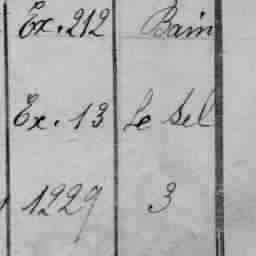 Ex. 212 Bain
Ex. 13 Le Sel
1929 3